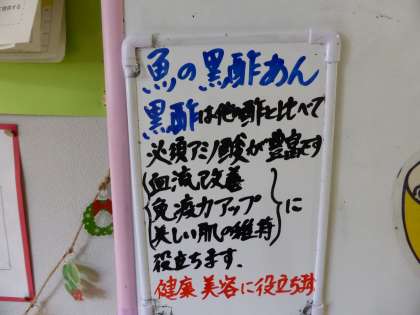 魚の黒酢あん
黒酢は他の酢と比べて
必須アミノ酸が豊富です
血流改善
免疫力アップ
美しい肌の維持
に
役立ちます.
健康美容に役立ちます